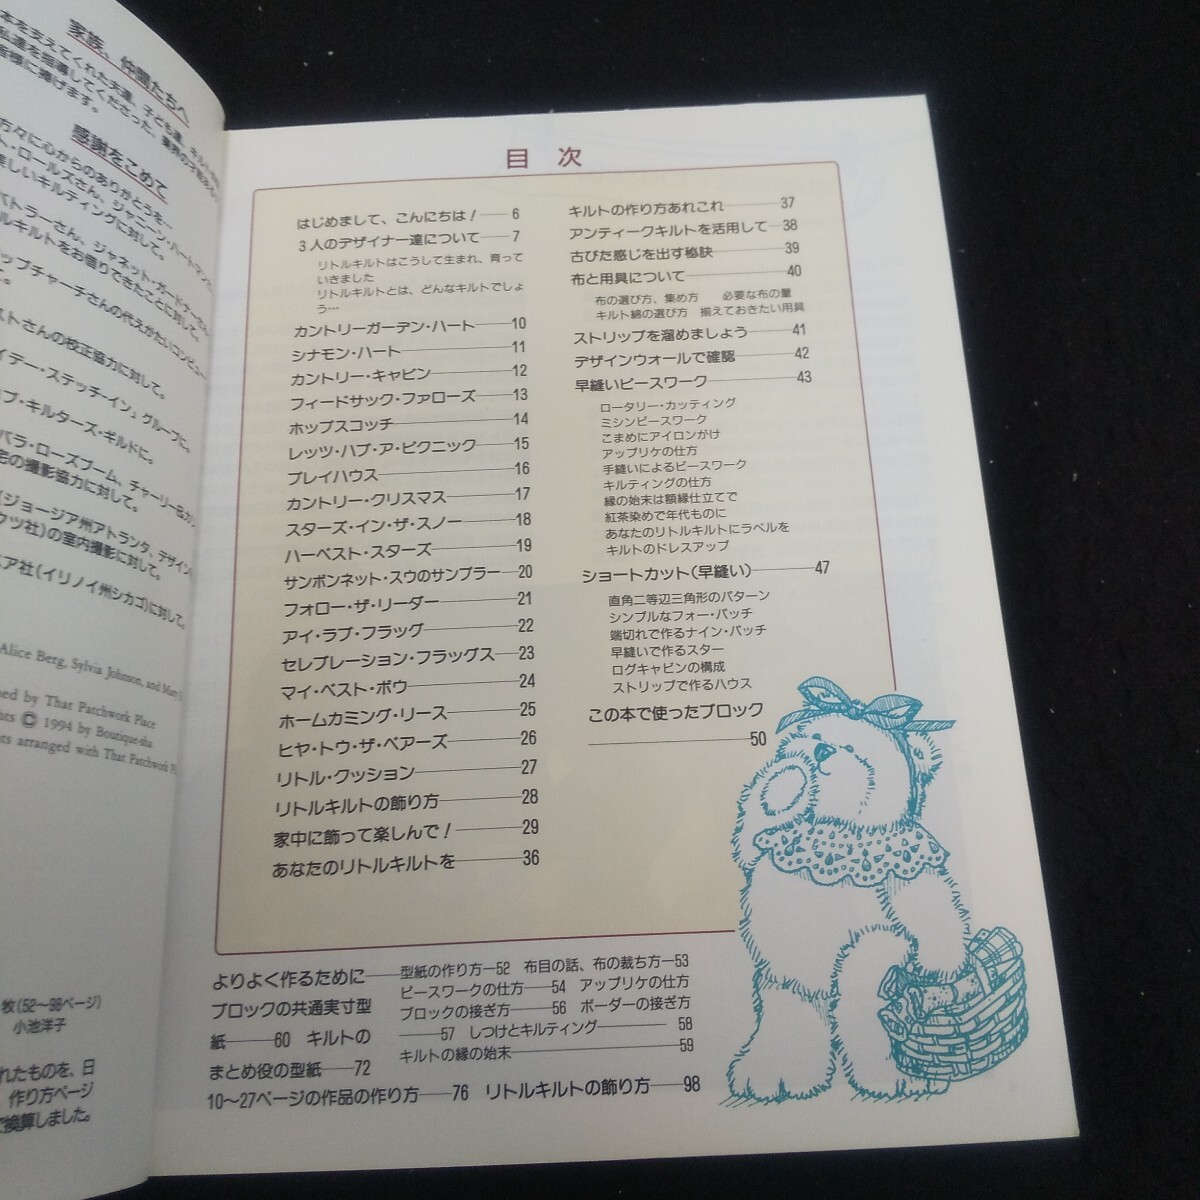 家族、仲間たちへ
本を支えてくれた夫達、子ども達、キルト
私達を指導してくださった、業界の
皆様に捧げます。
感謝をこめて
方々に心からのありがとうを…
ト・ロールズさん、ジャニーン・ハートマン
楽しいキルティングに対して。
バトラーさん、ジャネット・ガードナーさん
ルキルトをお借りできたことに対して。
ップチャーチさんの代えがたいコンピュー
ストさんの校正協力に対して。
イデー・ステッチイン」グループに。
ブ・キルターズ・ギルドに。
バラ・ローズブーム、チャーリー&カ
宅の撮影協力に対して。
(ジョージア州アトランタ、デザイン
クツ社)の室内撮影に対して。
ア社(イリノイ州シカゴ)に対して。
Alice Berg, Sylvia Johnson, and Mary
ned by That Patchwork Place
ghts © 1994 by Boutique-sha
ts arranged with That Patchwork
牧(52〜98ページ)
小池洋子
れたものを、日
作り方ページ
で換算しました。
目 次
はじめまして、こんにちは!──6
3人のデザイナー達について──7
リトルキルトはこうして生まれ、育って
いきました
リトルキルトとは、どんなキルトでしょ
う…
カントリーガーデン・ハート──10
シナモン・ハート──11
カントリー・キャビン──12
フィードサック・ファローズ──13
ホップスコッチ──14
レッツ・ハブ・ア・ピクニック──15
プレイハウス──16
カントリー・クリスマス──17
スターズ・イン・ザ・スノー──18
ハーベスト・スターズ──19
サンボンネット・スウのサンプラー──20
フォロー・ザ・リーダー──21
アイ・ラブ・フラッグ──22
セレブレーション・フラッグス──23
マイ・ベスト・ボウ──24
ホームカミング・リース──25
ヒヤ・トウ・ザ・ベアーズ──26
リトル・クッション──27
リトルキルトの飾り方──28
家中に飾って楽しんで!──29
あなたのリトルキルトを──36
キルトの作り方あれこれ──37
アンティークキルトを活用して──38
古びた感じを出す秘訣──39
布と用具について──40
布の選び方、集め方 必要な布の量
キルト綿の選び方 揃えておきたい用具
ストリップを溜めましよう──41
デザインウォールで確認──42
早縫いピースワーク──43
ロータリー・カッティング
ミシンピースワーク
こまめにアイロンがけ
アップリケの仕方
手縫いによるピースワーク
キルティングの仕方
縁の始末は額縁仕立てで
紅茶染めで年代ものに
あなたのリトルキルトにラベルを
キルトのドレスアップ
ショートカット(早縫い)──47
直角二等辺三角形のパターン
シンプルなフォー・パッチ
端切れで作るナイン・パッチ
早縫いで作るスター
ログキャビンの構成
ストリップで作るハウス
この本で使ったブロック
──50
よりよく作るために──型紙の作り方─52 布目の話、布の裁ち方─53
ピースワークの仕方──54 アップリケの仕方
ブロックの共通実寸型 ブロックの接ぎ方──56 ボーダーの接ぎ方
紙──60 キルトの ──57 しつけとキルティング──58
キルトの縁の始末──59
まとめ役の型紙──72
10〜27ページの作品の作り方──76 リトルキルトの飾り方──98